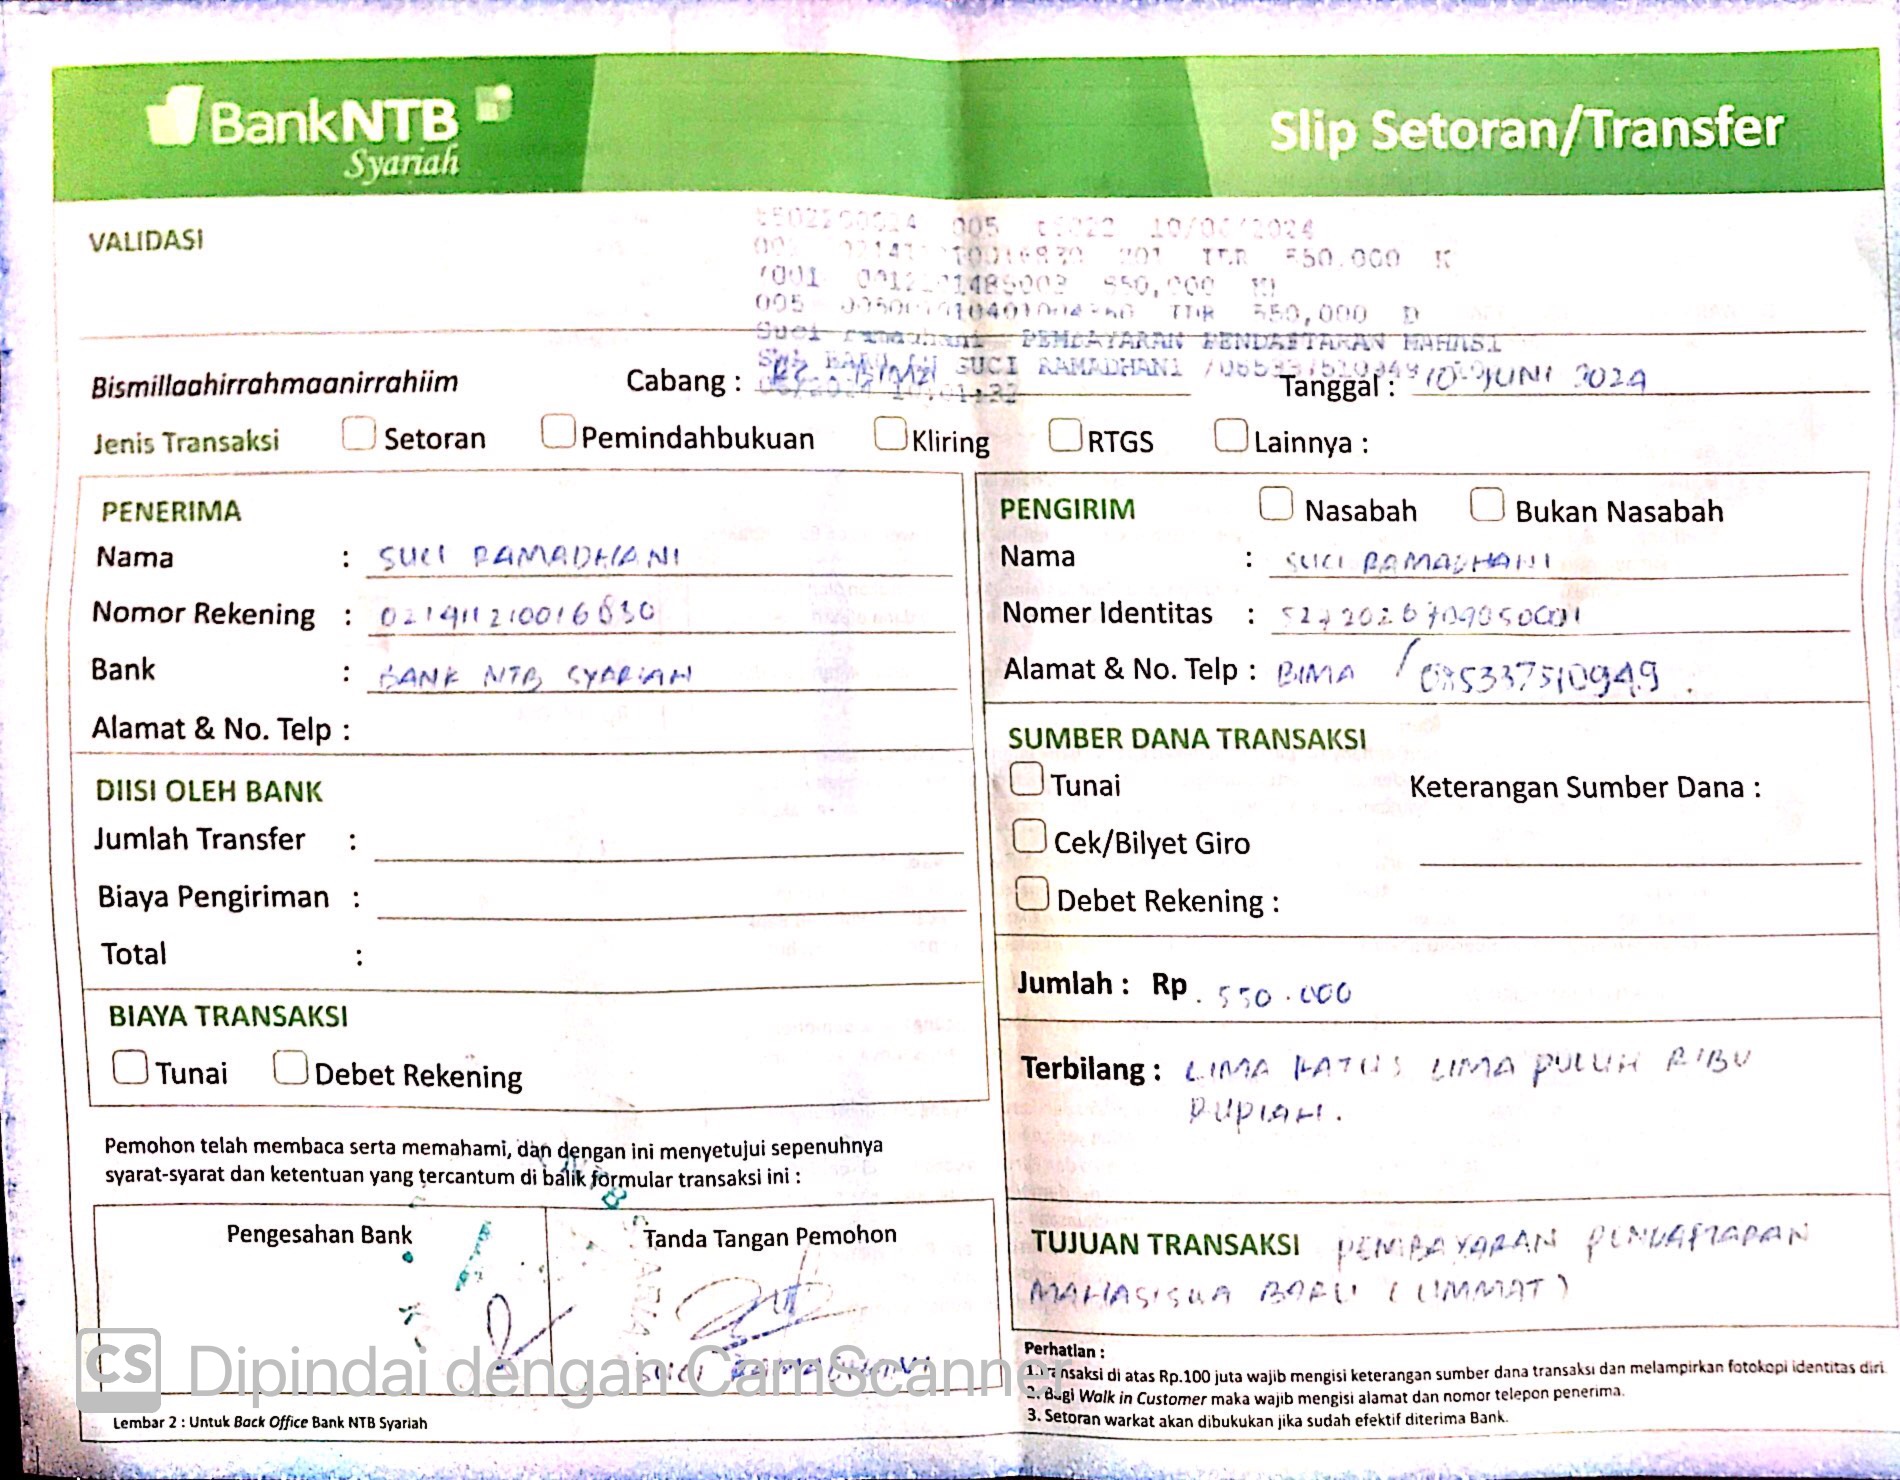 BankNTB
Syariah
Slip Setoran/Transfer
VALIDASI
005 10/06/2024
IDR 550.000 K
7001 550,000
005 IDR 550,000 D
Suci ramadhani PEMBAYARAN PENDAFTARAN MAHASI
SWA BARU SUCI RAMADHANI
Bismillaahirrahmaanirrahiim Cabang : Tanggal : 10 JUNI 2024
Jenis Transaksi Setoran Pemindahbukuan Kliring RTGS Lainnya :
PENERIMA
Nama : SUCI RAMADHANI
Nomor Rekening :
Bank : BANK NTB SYARIAH
Alamat & No. Telp :
DIISI OLEH BANK
Jumlah Transfer :
Biaya Pengiriman :
Total :
BIAYA TRANSAKSI
Tunai Debet Rekening
Pemohon telah membaca serta memahami, dan dengan ini menyetujui sepenuhnya
syarat-syarat dan ketentuan yang tercantum di balik formular transaksi ini :
Pengesahan Bank
Tanda Tangan Pemohon
SUCI RAMADHANI
Lembar 2 : Untuk Back Office Bank NTB Syariah
PENGIRIM Nasabah Bukan Nasabah
Nama : SUCI RAMADHANI
Nomer Identitas :
Alamat & No. Telp : BIMA / 085337510949.
SUMBER DANA TRANSAKSI
Tunai Keterangan Sumber Dana :
Cek/Bilyet Giro
Debet Rekening :
Jumlah : Rp. 550.000
Terbilang : LIMA RATUS LIMA PULUH RIBU
RUPIAH.
TUJUAN TRANSAKSI PEMBAYARAN PENDAFTARAN
MAHASISWA BARU (UMMAT)
Perhatian :
1. Transaksi di atas Rp.100 juta wajib mengisi keterangan sumber dana transaksi dan melampirkan fotokopi identitas diri
2. Bagi Walk in Customer maka wajib mengisi alamat dan nomor telepon penerima.
3. Setoran warkat akan dibukukan jika sudah efektif diterima Bank.
CS Dipindai dengan CamScanner